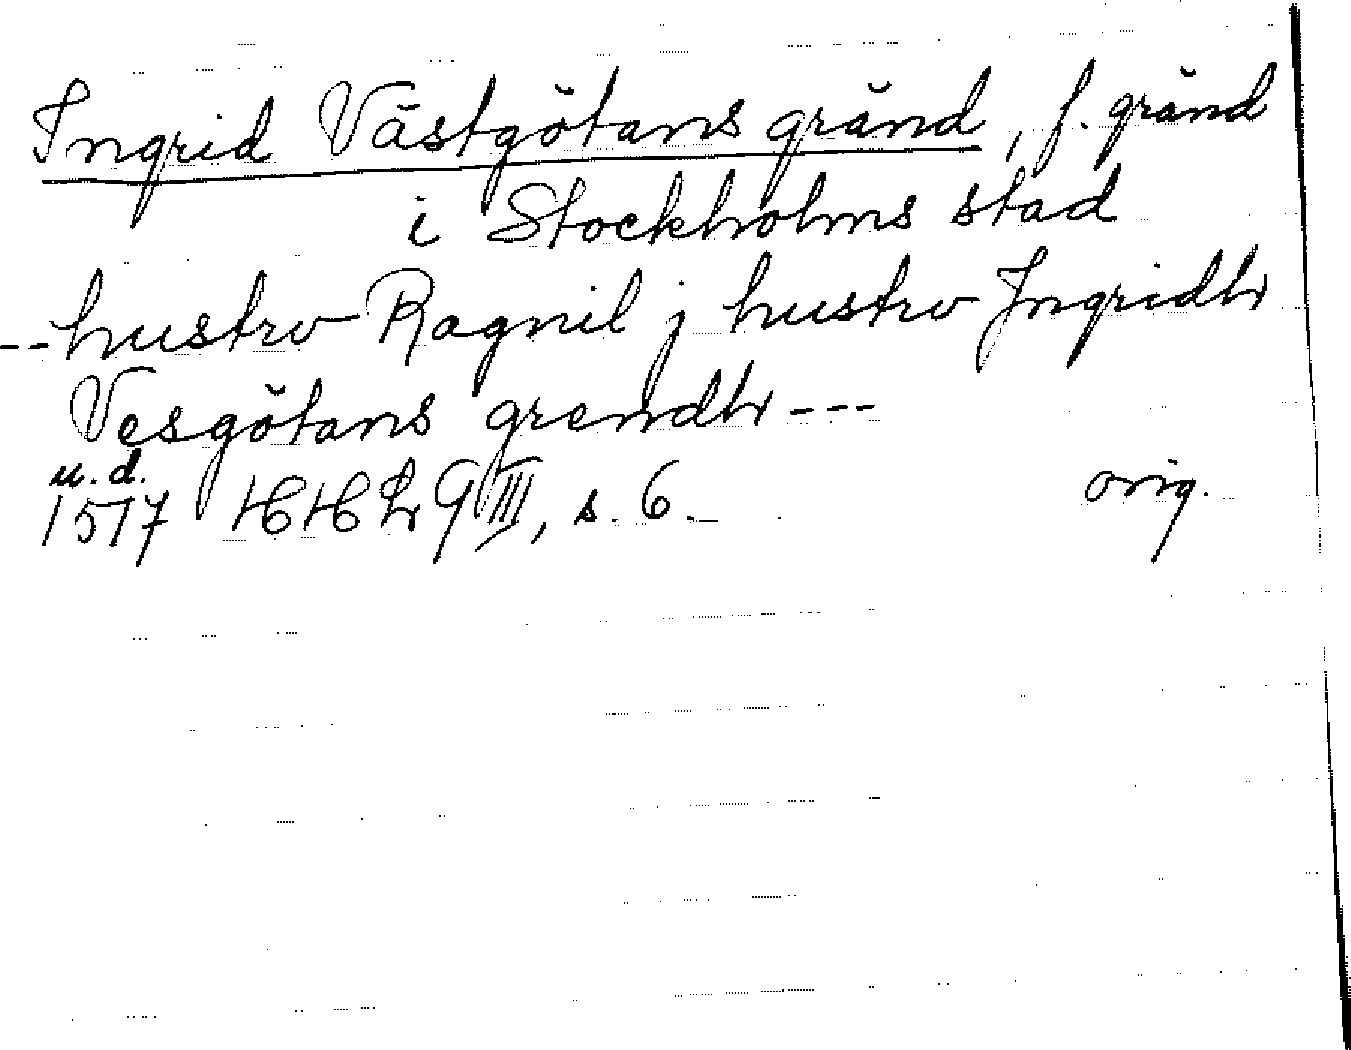 Ingrid Västgötans gränd, f. gränd
i Stockholms stad
--hustrv Ragnil j hustrv Jngridh
Vesgötans grendh ---
u.d.
1577 HHL 9 III, s. 6.
orig.